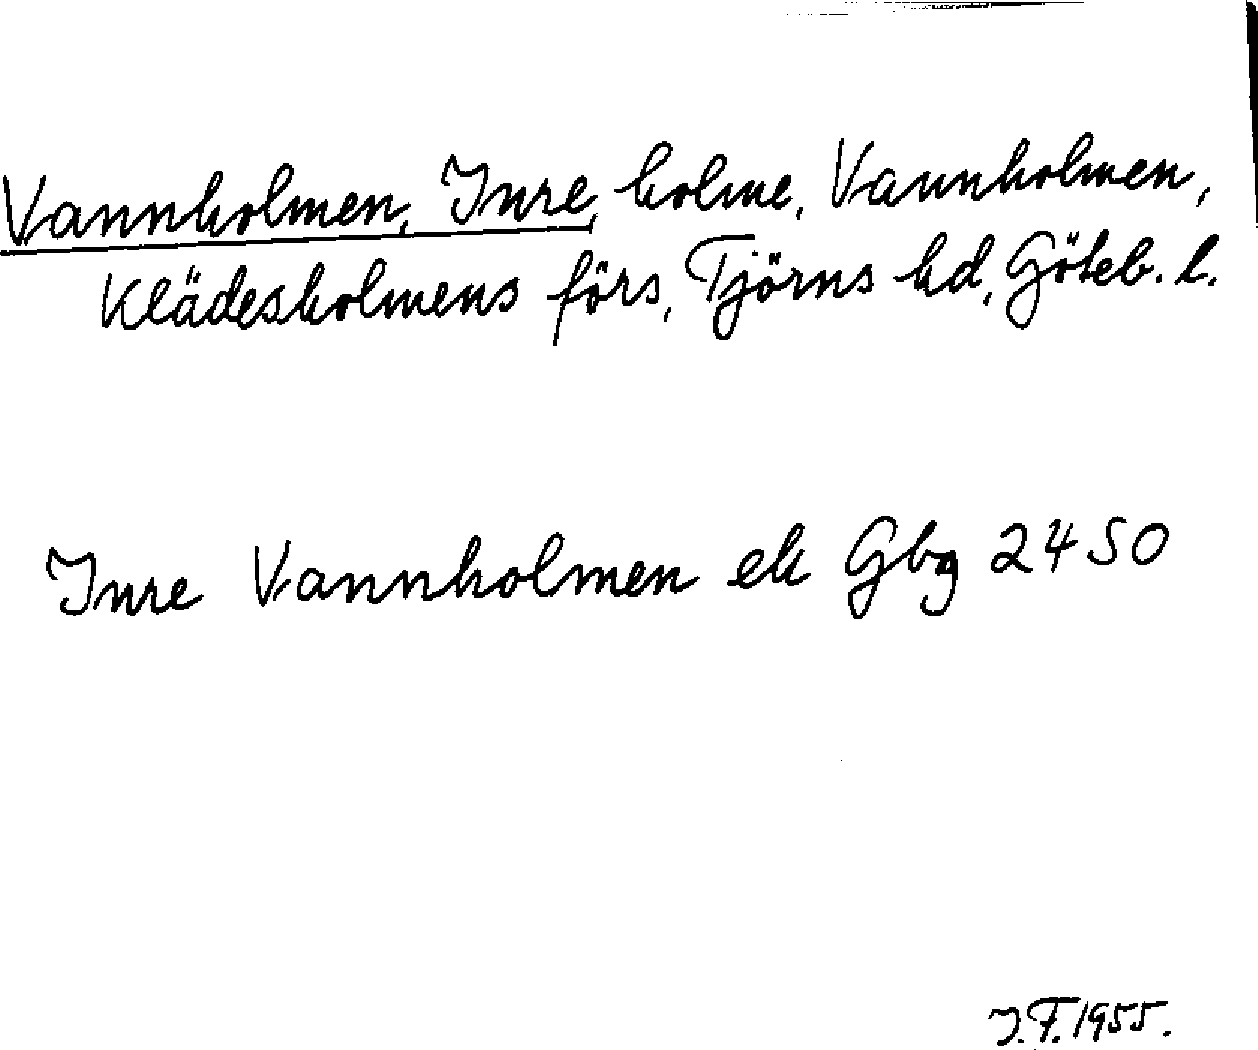 Vannholmen, Inre, holme, Vannholmen,
Klädesholmens förs, Tjörns hd, Göteb. l.
Inre Vannholmen ek Gbg 2450
J.F. 1955.